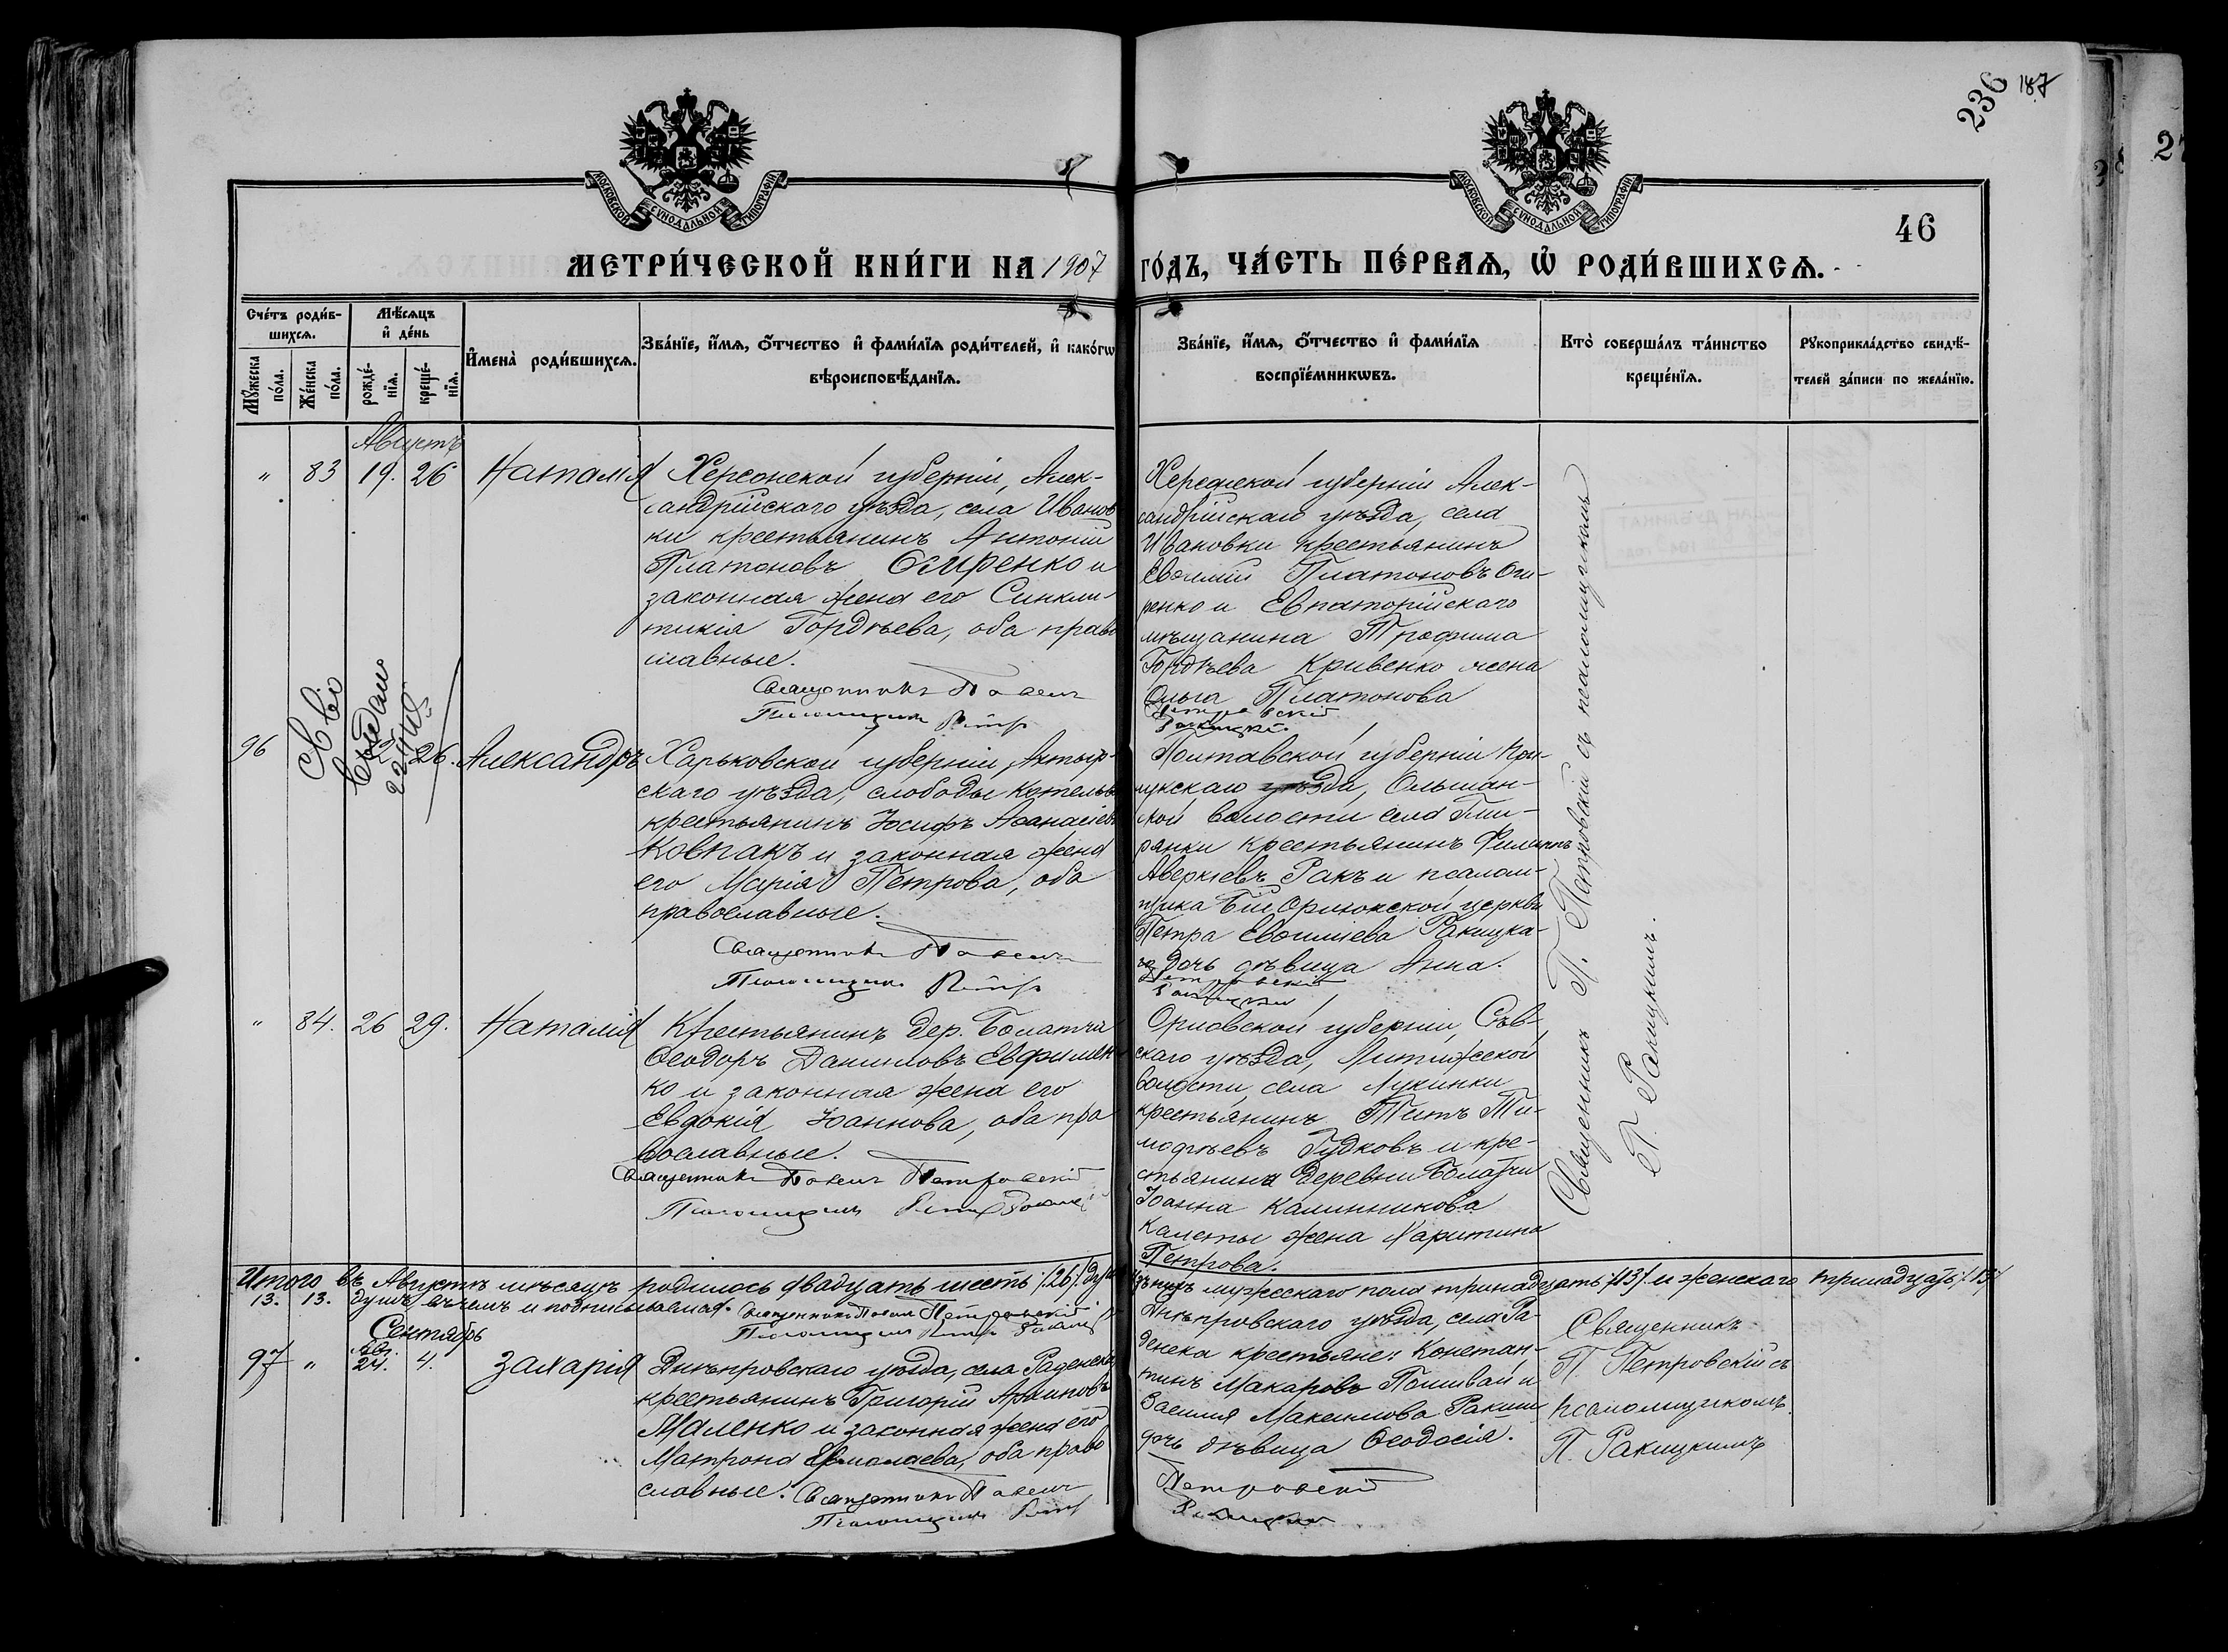 236 187
46
МОСКОВСКОЙ СУНОДАЛЬНОЙ ТИПОГРАФІИ
МОСКОВСКОЙ СУНОДАЛЬНОЙ ТИПОГРАФІИ
МЕТРИ́ЧЕСКОЙ КНИ́ГИ НА 1907 ГО́ДЪ, ЧА́СТЬ ПЕ́РВАѦ, Ѡ҆ РОДИ́ВШИХСѦ.
Сче́тъ роди́в-
шихсѧ.
Мѣ́сѧцъ
и҆ де́нь
Мꙋ́жеска
по́ла.
Же́нска
по́ла.
рожде́-
нїѧ.
креще́-
нїѧ.
И҆мена̀ роди́вшихсѧ.
Зва́нїе, и҆́мѧ, ѻ҆́тчество и҆ фами́лїѧ роди́телей, и҆ како́гѡ
вѣроисповѣ́данїѧ.
Зва́нїе, и҆́мѧ, ѻ҆́тчество и҆ фами́лїѧ
воспрїе́мникѡвъ.
Кто̀ соверша́лъ та́инство
креще́нїѧ.
Рꙋкоприкла́дство свидѣ́-
телей за́писи по жела́нїю.
Августъ
" 83 19. 26 Наталія
Херсонской губерніи, Алек-
сандрійскаго уѣзда, села Иванов
ки крестьянинъ Антоній
Платоновъ Огиренко и
законная жена его Синкли-
тикія Гордѣева, оба право
славные.
Священникъ Павелъ
Псаломщикъ Петръ
Херсонской губерніи Алек-
сандрійскаго уѣзда, села
Ивановки крестьянинъ
Евѳимій Платоновъ Оги-
ренко и Евпаторійскаго
мѣщанина Трофима
Гордѣева Кривенко жена
Ольга Платонова
Петровскій
Ракицкій.
Св во
выдано
96 26. Александръ
Харьковской губерніи, Ахтыр-
скаго уѣзда, слободы Котельвы
крестьянинъ Іосифъ Аѳанасіевъ
Ковпакъ и законная жена
его Марія Петрова, оба
православные.
Священникъ Павелъ
Псаломщикъ Петръ
Полтавской губерніи При-
лукскаго уѣзда, Ольшан-
кой волости села
крестьянинъ Филиппъ
Аверкіевъ Ракъ и псалом-
щика церкви
Петра Евѳиміева Ракицка-
го дочь дѣвица Анна.
Петровскій
Ракицкій
" 84. 26 29. Наталія
Крестьянинъ дер. Болатчи
Ѳеодоръ Даниловъ Евфимен
ко и законная жена его
Евдокія Іоаннова, оба пра
вославные.
Священникъ Павелъ Петровскій
Псаломщикъ Петръ Ракицкій
Орловской губерніи, Сѣв-
скаго уѣзда, Литижской
волости, села Лукинки
крестьянинъ Титъ Ти-
моѳеевъ Гудковъ и кре-
стьянина деревни Болатчи
Іоанна Калинникова
жена Харитина
Петрова.
Священникъ П. Петровскій съ псаломщикомъ
П. Ракицкимъ.
Итого въ Августѣ мѣсяцѣ родилось двадцать шесть /26/ душъ мужескаго пола тринадцать /13/ и женскаго тринадцать /13/
13. 13. душъ въ чемъ и подписываемся. Священникъ Павелъ Петровскій
Псаломщикъ Петръ Ракицкій
Сентябрь
Авг.
97 " 24. 4. Захарія
Днѣпровскаго уѣзда, села Раденска
крестьянинъ Григорій
Маленко и законная жена его
Матрона Ермолаева, оба право
славные. Священникъ Павелъ
Псаломщикъ Петръ
Днѣпровскаго уѣзда, села Ра-
денска крестьяне: Констан-
тинъ Макаровъ Поливай и
Василія Максимова
дочь дѣвица Ѳеодосія.
Петровскій
Ракицкій
Священникъ
П. Петровскій съ
псаломщикомъ
П. Ракицкимъ